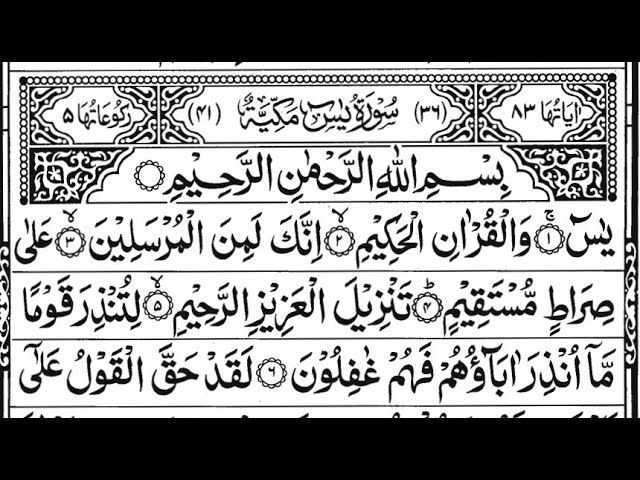 اٰيَاتُهَا ٨٣ (٣٦) سُوْرَةُ يٰسٓ مَكِّيَّةٌ (٤١) رُكُوْعَاتُهَا ٥
بِسْمِ اللّٰهِ الرَّحْمٰنِ الرَّحِيْمِ
يٰسٓ ۚ﴿١﴾ وَالْقُرْاٰنِ الْحَكِيْمِ ۙ﴿٢﴾ اِنَّكَ لَمِنَ الْمُرْسَلِيْنَ ۙ﴿٣﴾ عَلٰى
صِرَاطٍ مُّسْتَقِيْمٍ ؕ﴿٤﴾ تَنْزِيْلَ الْعَزِيْزِ الرَّحِيْمِ ۙ﴿٥﴾ لِتُنْذِرَ قَوْمًا
مَّاۤ اُنْذِرَ اٰبَآؤُهُمْ فَهُمْ غٰفِلُوْنَ ﴿٦﴾ لَقَدْ حَقَّ الْقَوْلُ عَلٰٓى